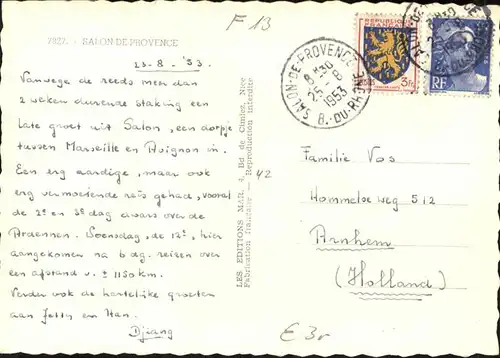 F 13
7822. - SALON-DE-PROVENCE
23-8-'53.
Vanwege de reeds meer dan
2 weken durende staking een
late groet uit Salon, een dorpje
tussen Marseille en Avignon in.
Een erg aardige, maar ook
erg vermoeiende reis gehad, vooral
de 2e en 3e dag dwars over de
Ardennen. Woensdag, de 12e, hier
aangekomen na 6 dg. reizen over
een afstand v. ± 1150 km.
Verder ook de hartelijke groeten
aan Jetty en Han.
Djiang
LES EDITIONS MAR, 4, Bd de Cimiez, Nice
Fabrication française — Reproduction interdite
42
SALON-DE-PROVENCE
8H30
25-8
1953
B.-DU-RHONE
REPUBLIQUE FRANCAISE
5f
RF
Familie Vos
Hommelseweg 512
Arnhem
(Holland)
€ 3,-